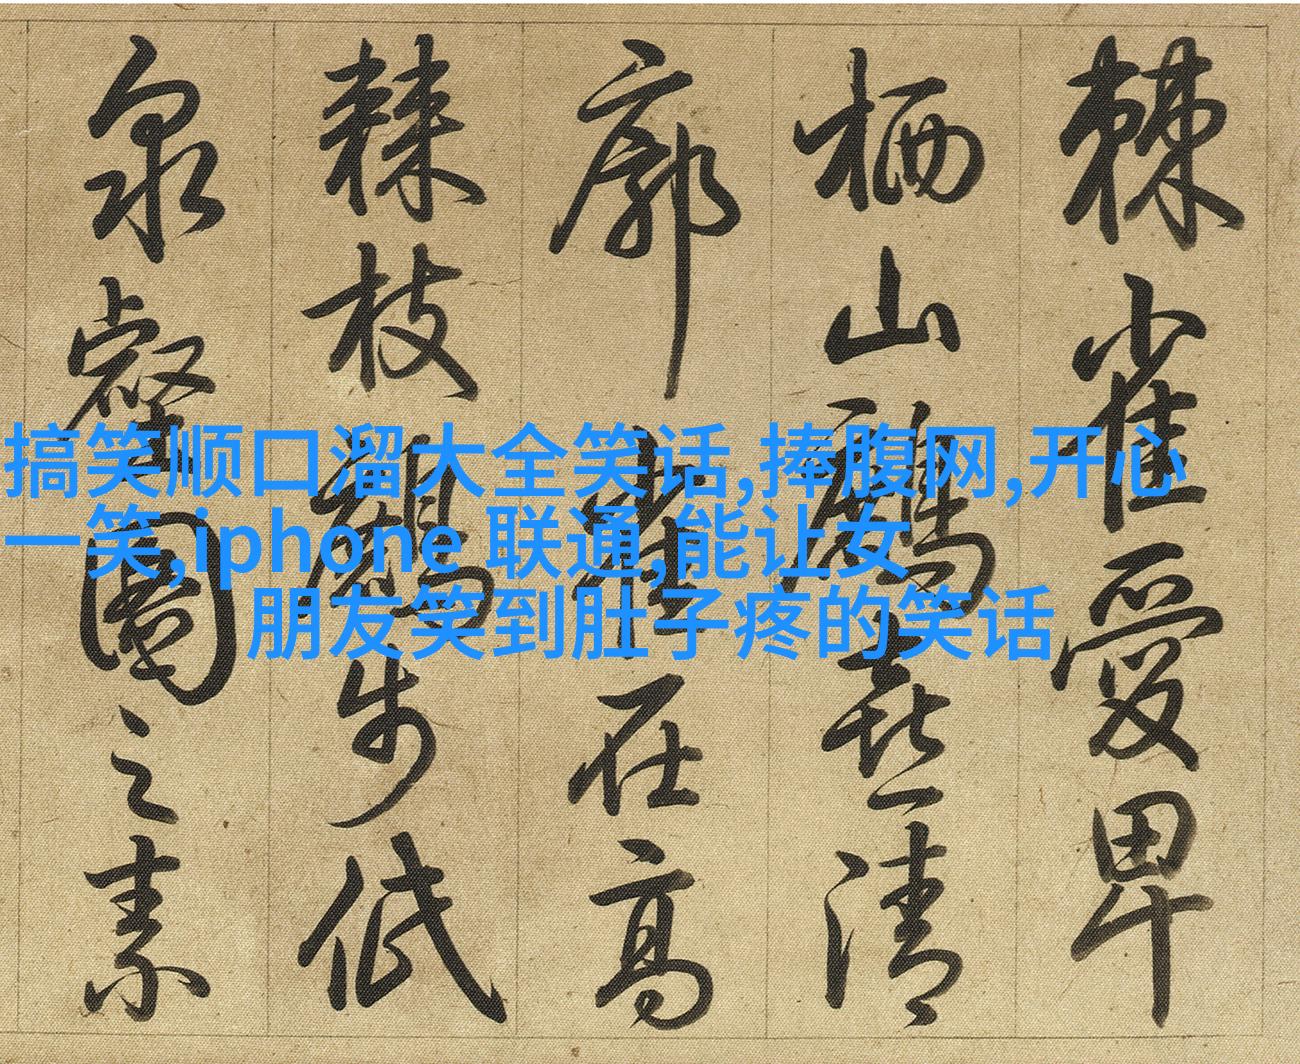 棘雀愛卑
栖山喜清
廓在高
棘枝步低
泉壑園之素
搞笑顺口溜大全笑话,捧腹网,开心
一笑,iphone 联通,能让女
朋友笑到肚子疼的笑话